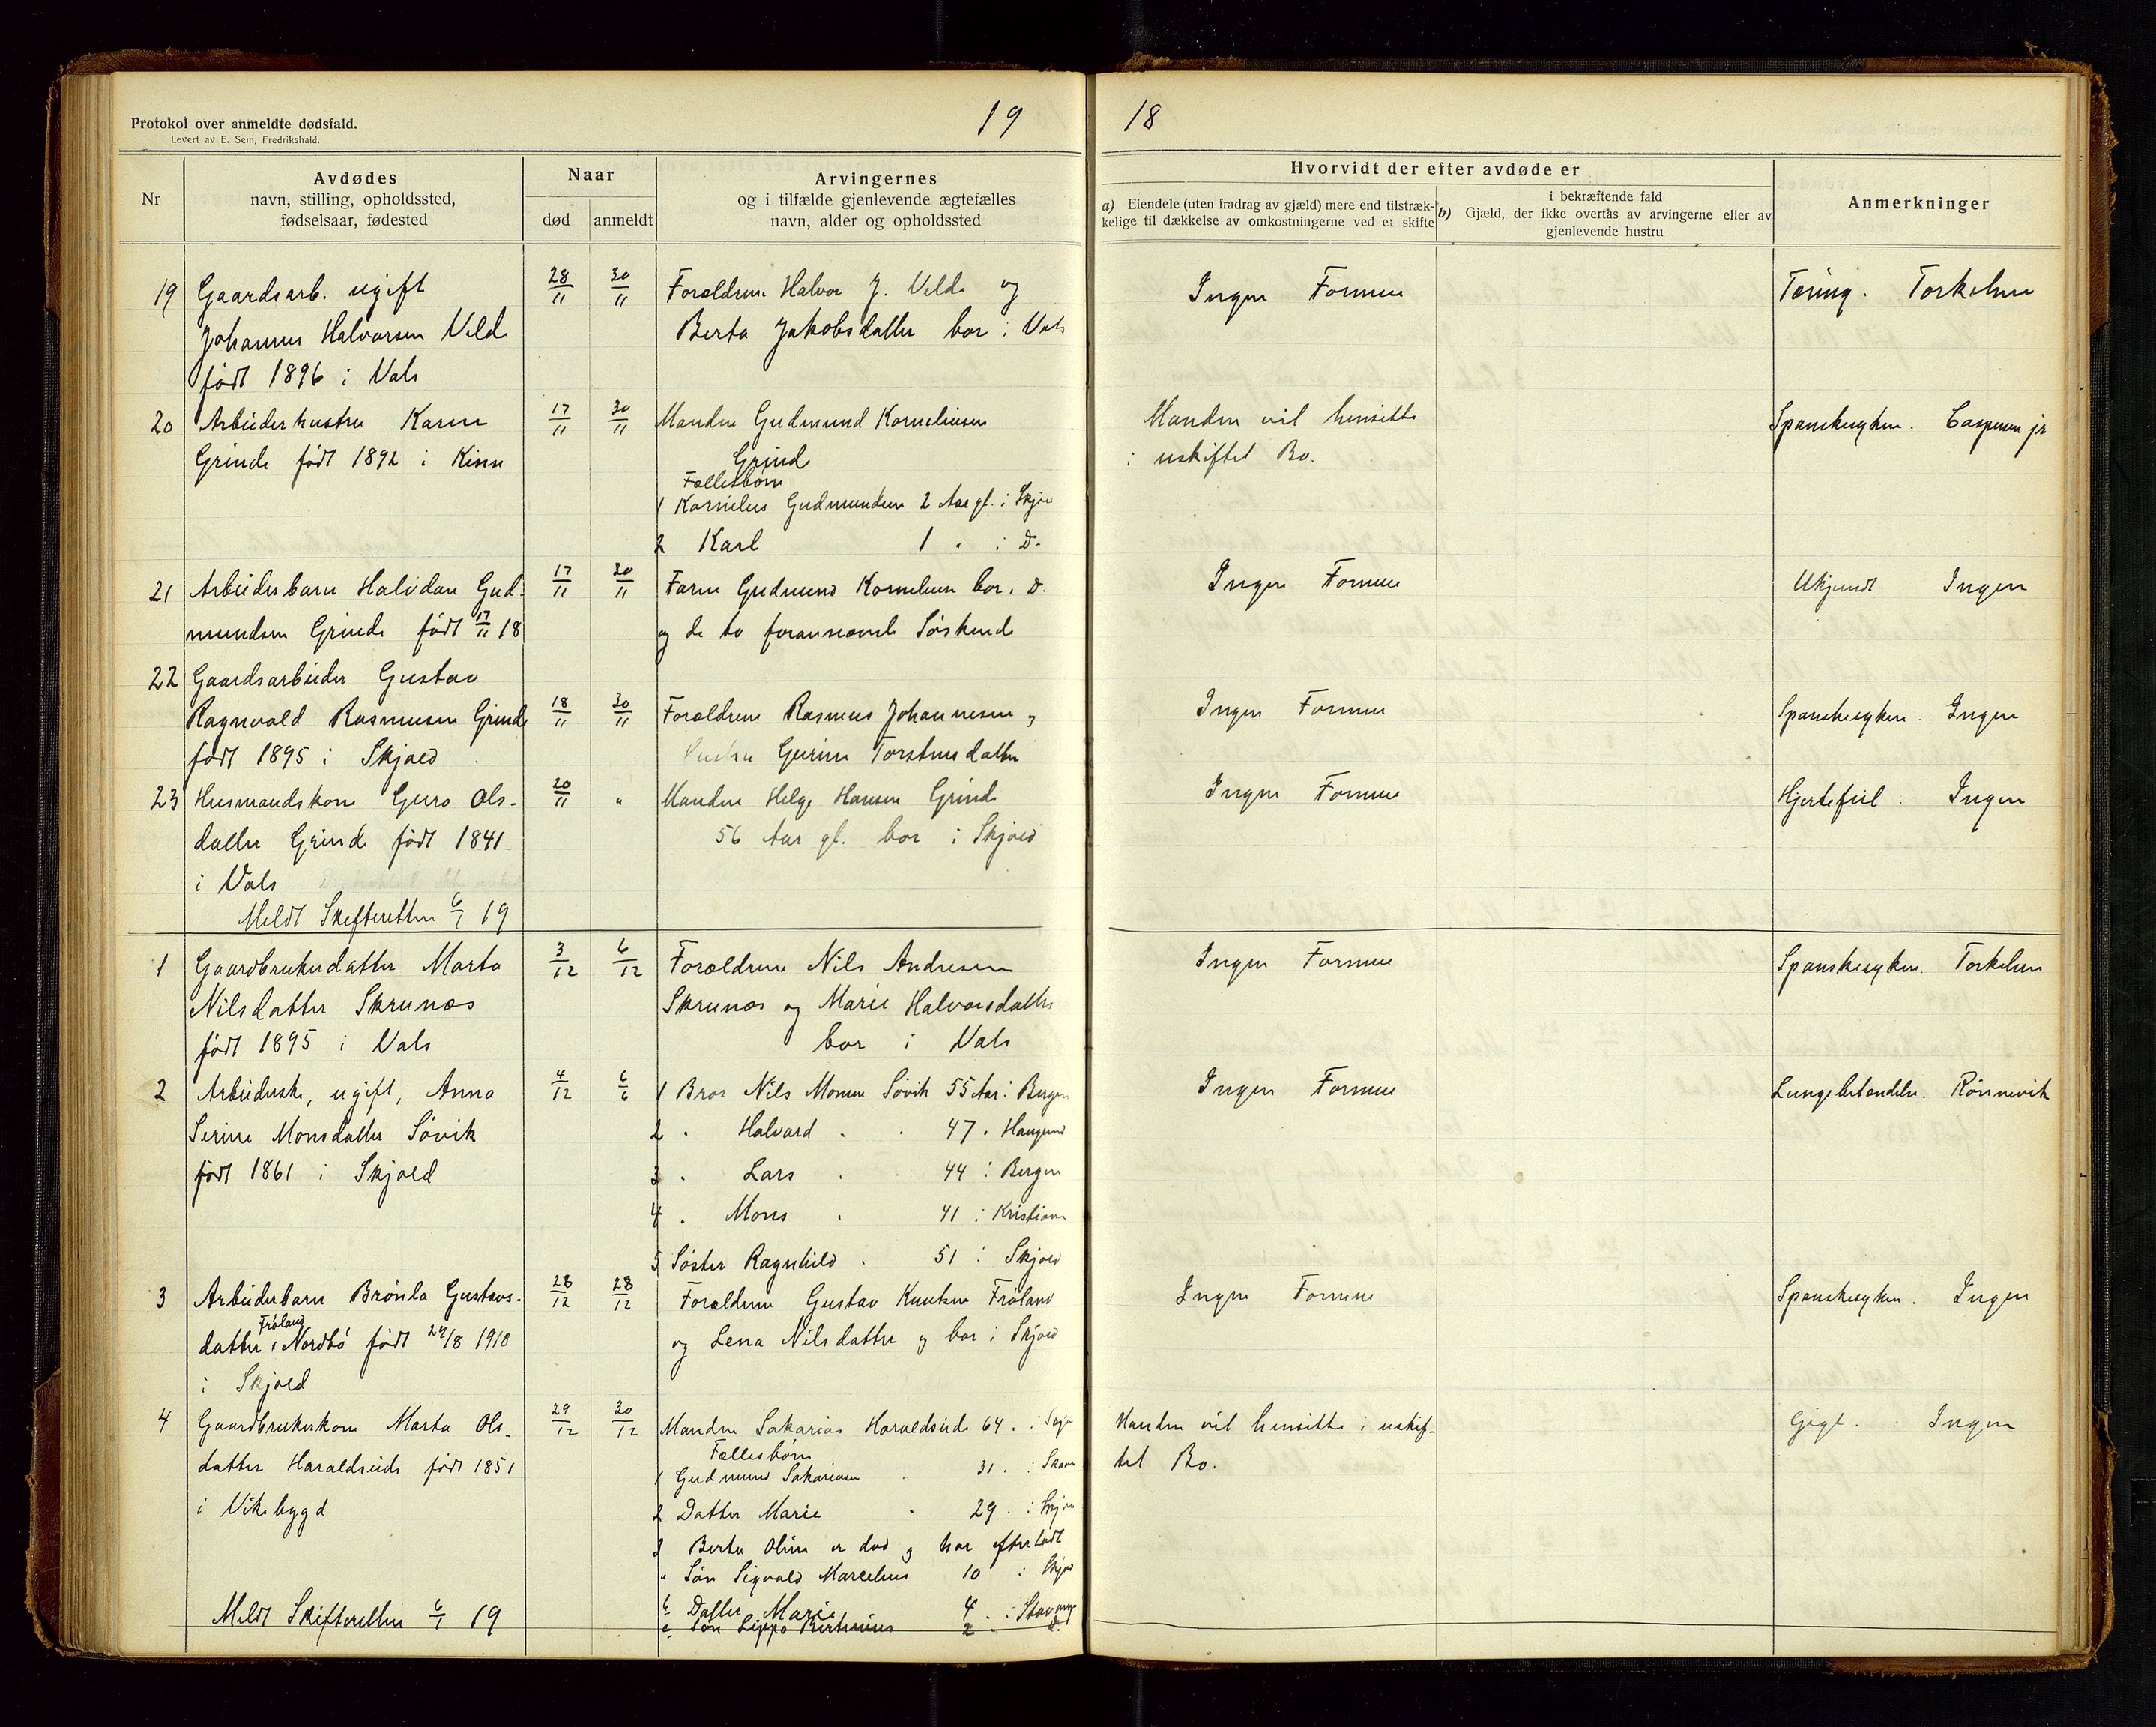 Protokol over anmeldte dødsfald.
Levert av E. Sem, Fredrikshald.
19
18
Nr
Avdødes
navn, stilling, opholdssted,
fødselsaar, fødested
Naar
død
anmeldt
Arvingernes
og i tilfælde gjenlevende ægtefælles
navn, alder og opholdssted
Hvorvidt der efter avdøde er
a) Eiendele (uten fradrag av gjæld) mere end tilstræk-
kelige til dækkelse av omkostningerne ved et skifte
i bekræftende fald
b) Gjæld, der ikke overtas av arvingerne eller av
gjenlevende hustru
Anmerkninger
19 Gaardsarb. ugift 28/11 30/11 Forældrene Halvor J. Velde og Ingen Formue Tæring. Torkelsen
Johannes Halvorsen Velde Berta Jakobsdatter bor i Vats
født 1896 i Vats
20 Arbeiderhustru Karen 17/11 30/11 Manden Gudmund Korneliusen Manden vil hensitte Spanskesyken. Caspersen jr
Grinde født 1892 i Kinn Grinde i uskiftet Bo.
Fællesbørn
1 Kornelius Gudmundsen 2 Aar gl. i Skjold
2 Karl 1 " i D.
21 Arbeiderbarn Halvdan Gud- 17/11 30/11 Faren Gudmund Kornelius bor i D. Ingen Formue Ukjendt Ingen
mundsen Grinde født 17/11 18 og de to forannevnte Søskende
22 Gaardsarbeider Gustav
Ragnvald Rasmusen Grinde 18/11 30/11 Forældrene Rasmus Johannesen og Ingen Formue Spanskesyken. Ingen
født 1895 i Skjold Hustru Gurine Torstensdatter
23 Husmandskone Guro Ols- 20/11 " Manden Helge Hansen Grinde Ingen Formue Hjertefeil. Ingen
datter Grinde født 1841 56 Aar gl. bor i Skjold
i Vats
Meldt Skifteretten 6/1 19
1 Gaardbrukerdatter Marta 3/12 6/12 Forældrene Nils Andresen Ingen Formue Spanskesyken. Torkelsen
Nilsdatter Skrunæs Skrunæs og Marie Halvorsdatter
født 1895 i Vats bor i Vats
2 Arbeiderske, ugift, Anna 4/12 6/6 1 Bror Nils Monsen Søvik 55 Aar i Bergen Ingen Formue Lungebetændelse. Rønnevik
Serine Monsdatter Søvik 2 " Halvard " " 47 " Haugesund
født 1861 i Skjold 3 " Lars " 44 i Bergen
4 " Mons " 41 i Kristiania
5 Søster Ragnhild " 51 i Skjold
3 Arbeiderbarn Brønla Gustavs- 28/12 28/12 Forældrene Gustav Knutsen Frøland Ingen Formue Spanskesyken. Ingen
Frøland
datter i Nordbø født 24/8 1918 og Lena Nilsdatter og bor i Skjold
i Skjold
4 Gaardbrukerkone Marta Ols- 29/12 30/12 Manden Sakarias Haraldseide 64 " i Skjold Manden vil hensitte i uskif- Gigt. Ingen
datter Haraldseide født 1851 Fællesbørn tet Bo.
1 Gudmund Sakariasen " 31 " i
i Vikebygd 2 Datter Marie " 29 " i Skjold
3 Berta Oline er død og har efterladt
a Søn Sigvald Marselius 10 i Skjold
b Datter Marie 4 " i Stavanger
Meldt Skifteretten 6/1 19
c Søn 2 D.